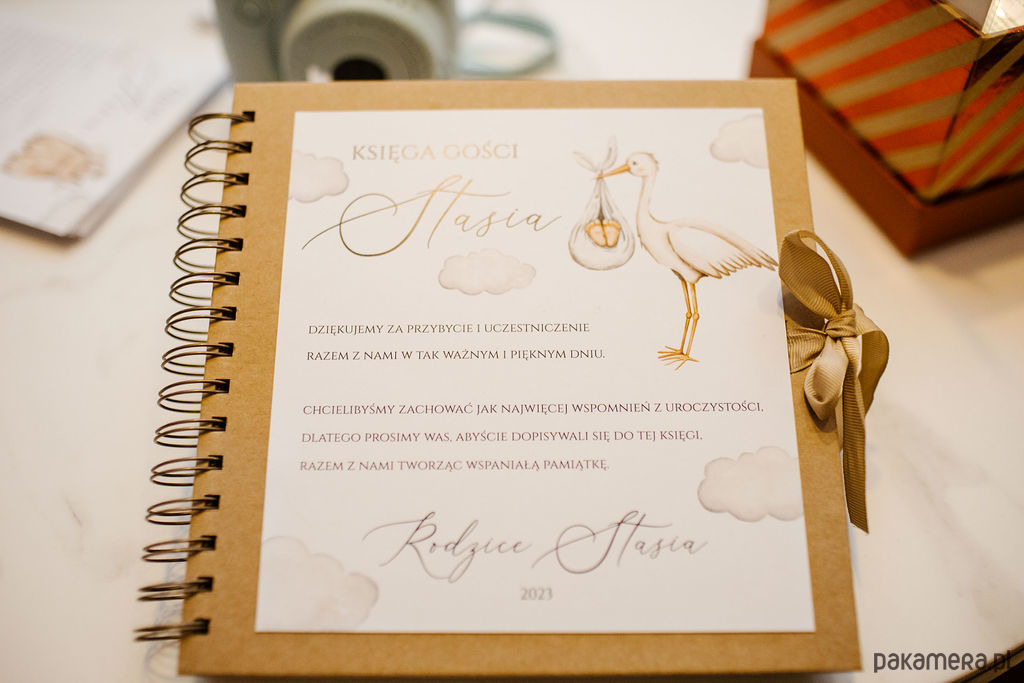 KSIĘGA GOŚCI
Stasia
DZIĘKUJEMY ZA PRZYBYCIE I UCZESTNICZENIE
RAZEM Z NAMI W TAK WAŻNYM I PIĘKNYM DNIU.
CHCIELIBYŚMY ZACHOWAĆ JAK NAJWIĘCEJ WSPOMNIEŃ Z UROCZYSTOŚCI,
DLATEGO PROSIMY WAS, ABYŚCIE DOPISYWALI SIĘ DO TEJ KSIĘGI,
RAZEM Z NAMI TWORZĄC WSPANIAŁĄ PAMIĄTKĘ.
Rodzice Stasia
2023
pakamera.pl